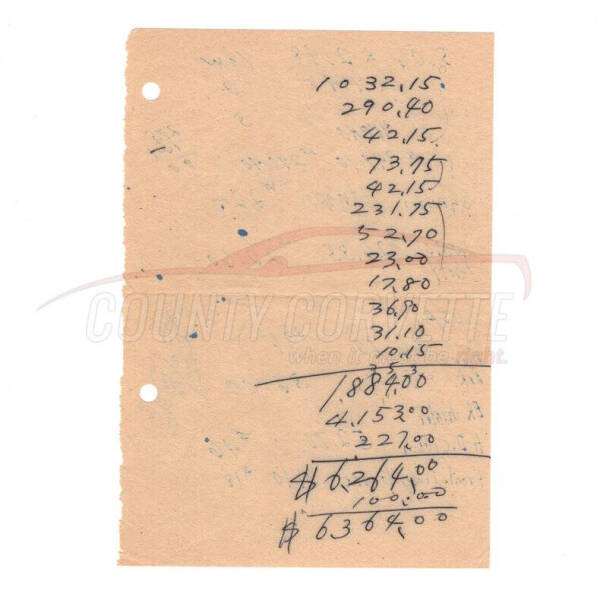 1032.15
290.40
42.15
73.75
42.15
231.75
52.70
23.00
17.80
36.90
31.10
10.15
3 5 3
1,884.00
4,153.00
227.00
$6,264.00
100.00
$6364.00
COUNTY CORVETTE